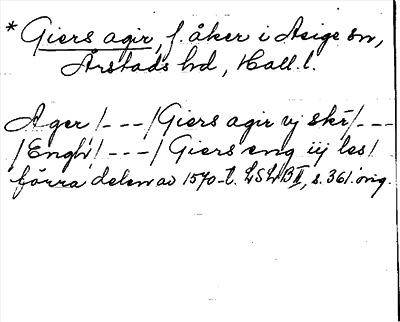 * Giers agir, f. åker i Asige sn,
Årstads hd, Hall. l.
Ager /---/ Giers agir vj skr /---
/Engh/ /---/ Giers eng iij les/
förra delen av 1570-t. LSLB II, s. 361. orig.